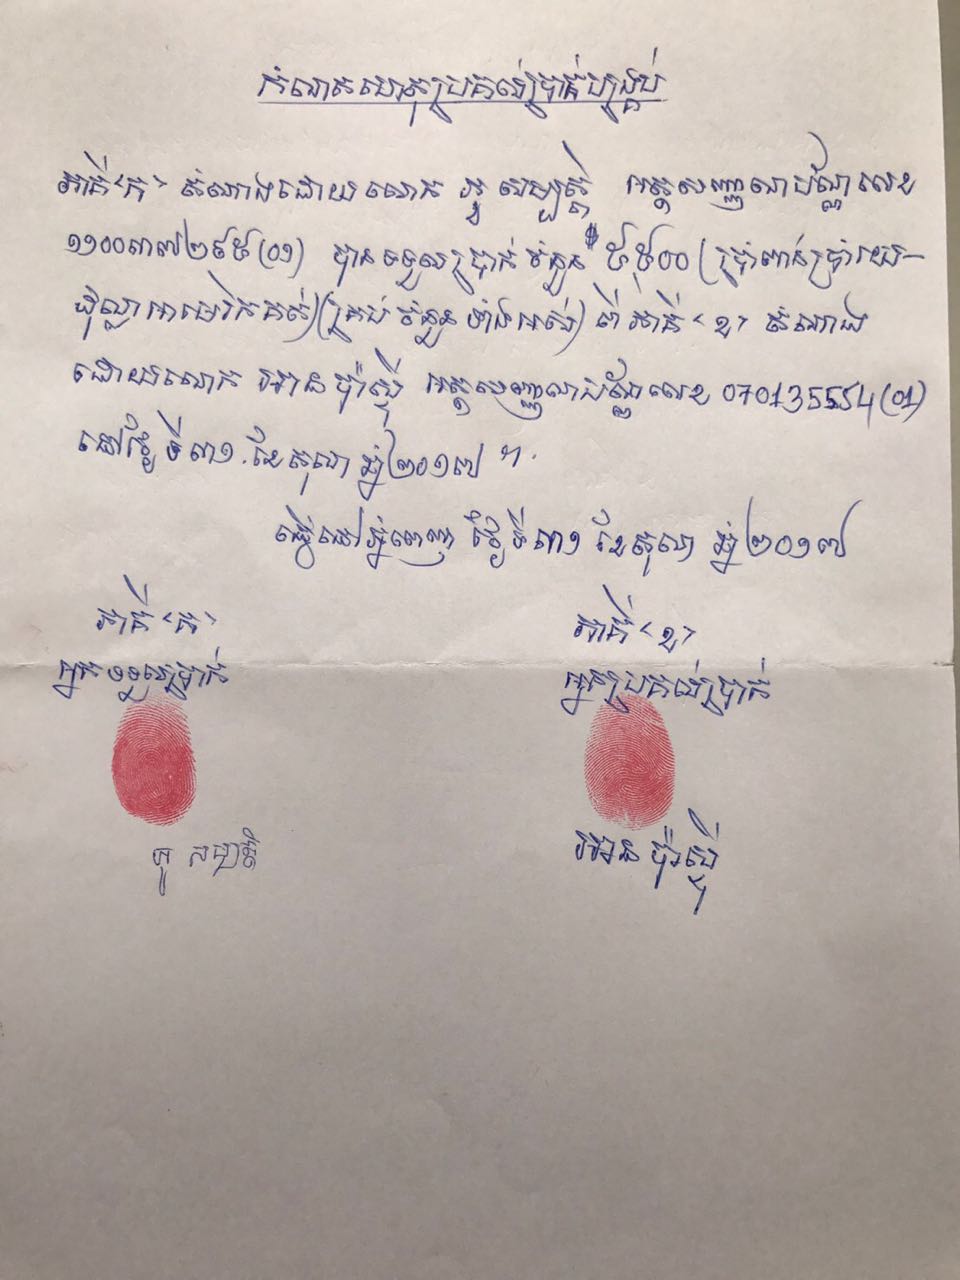 កំណត់ហេតុប្រគល់ប្រាក់បង្គ្រប់
ភាគី<ក> តំណាងដោយលោក ភូ សម្បត្តិ អត្តសញ្ញាណប័ណ្ណលេខ
១១០០៣៧២៩៥(០១) បានទទួលប្រាក់ចំនួន $ ៥៥០០ (ប្រាំពាន់ប្រាំរយ-
ដុល្លាអាមេរិកគត់)(គ្រប់ចំនួនទាំងអស់) ពីភាគី <ខ> តំណាង
ដោយលោក អាន ប៉ាស្ទី អត្តសញ្ញាណប័ណ្ណលេខ 070135554(01)
នៅថ្ងៃទី៣១.ខែតុលា ឆ្នាំ២០១៧ ។.
ធ្វើនៅភ្នំពេញ ថ្ងៃទី៣១ ខែតុលា ឆ្នាំ២០១៧
ភាគី <ក>
អ្នកទទួលប្រាក់
ភូ សម្បត្តិ
ភាគី <ខ>
អ្នកប្រគល់ប្រាក់
អាន ប៉ាស្ទី